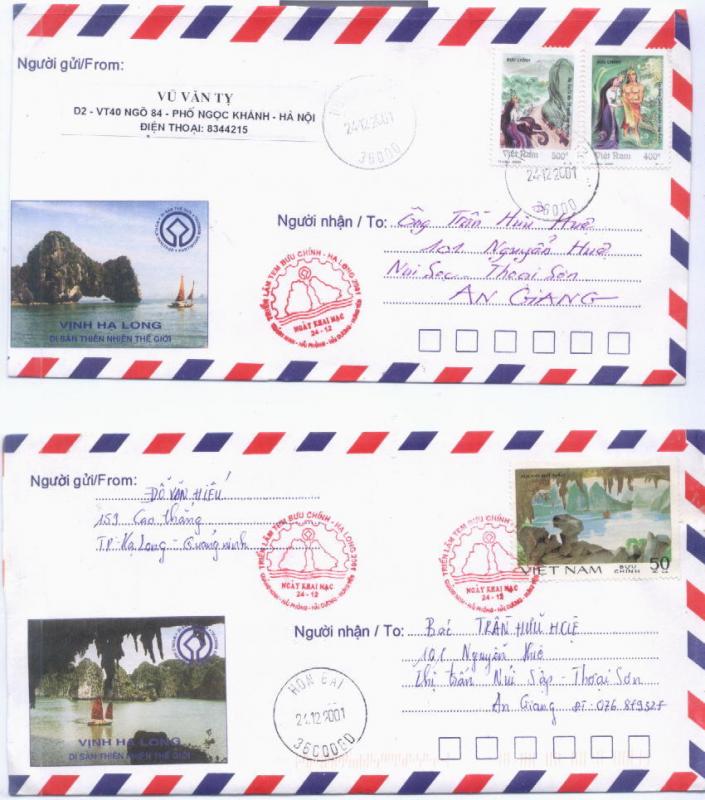 Người gửi/From:
VŨ VĂN TỴ
D2 - VT40 NGÕ 84 - PHỐ NGỌC KHÁNH - HÀ NỘI
ĐIỆN THOẠI: 8344215
24.12.2001
36000
BƯU CHÍNH
Việt Nam 500đ
BƯU CHÍNH
Việt Nam 400đ
24.12.2001
36000
VỊNH HẠ LONG
DI SẢN THIÊN NHIÊN THẾ GIỚI
TRIỂN LÃM TEM BƯU CHÍNH - HẠ LONG 2001
NGÀY KHAI MẠC
24 - 12
QUẢNG NINH - HẢI PHÒNG - HẢI DƯƠNG - HƯNG YÊN
Người nhận / To: Ông Trần Hữu Huệ
101 Nguyễn Huệ
Núi Sập - Thoại Sơn
AN GIANG
Người gửi/From:
ĐỖ VĂN HIẾU
159 Cao Thắng
TP. Hạ Long - Quảng Ninh
TRIỂN LÃM TEM BƯU CHÍNH - HẠ LONG 2001
NGÀY KHAI MẠC
24 - 12
QUẢNG NINH - HẢI PHÒNG - HẢI DƯƠNG - HƯNG YÊN
TRIỂN LÃM TEM BƯU CHÍNH - HẠ LONG 2001
NGÀY KHAI MẠC
24 - 12
QUẢNG NINH - HẢI PHÒNG - HẢI DƯƠNG - HƯNG YÊN
VIỆT NAM BƯU CHÍNH 50 XU
VỊNH HẠ LONG
DI SẢN THIÊN NHIÊN THẾ GIỚI
HON GAI
24.12.2001
3600000
Người nhận / To: Bác TRẦN HỮU HUỆ
101 Nguyễn Huệ
Thị trấn Núi Sập - Thoại Sơn
An Giang ĐT: 076.879327